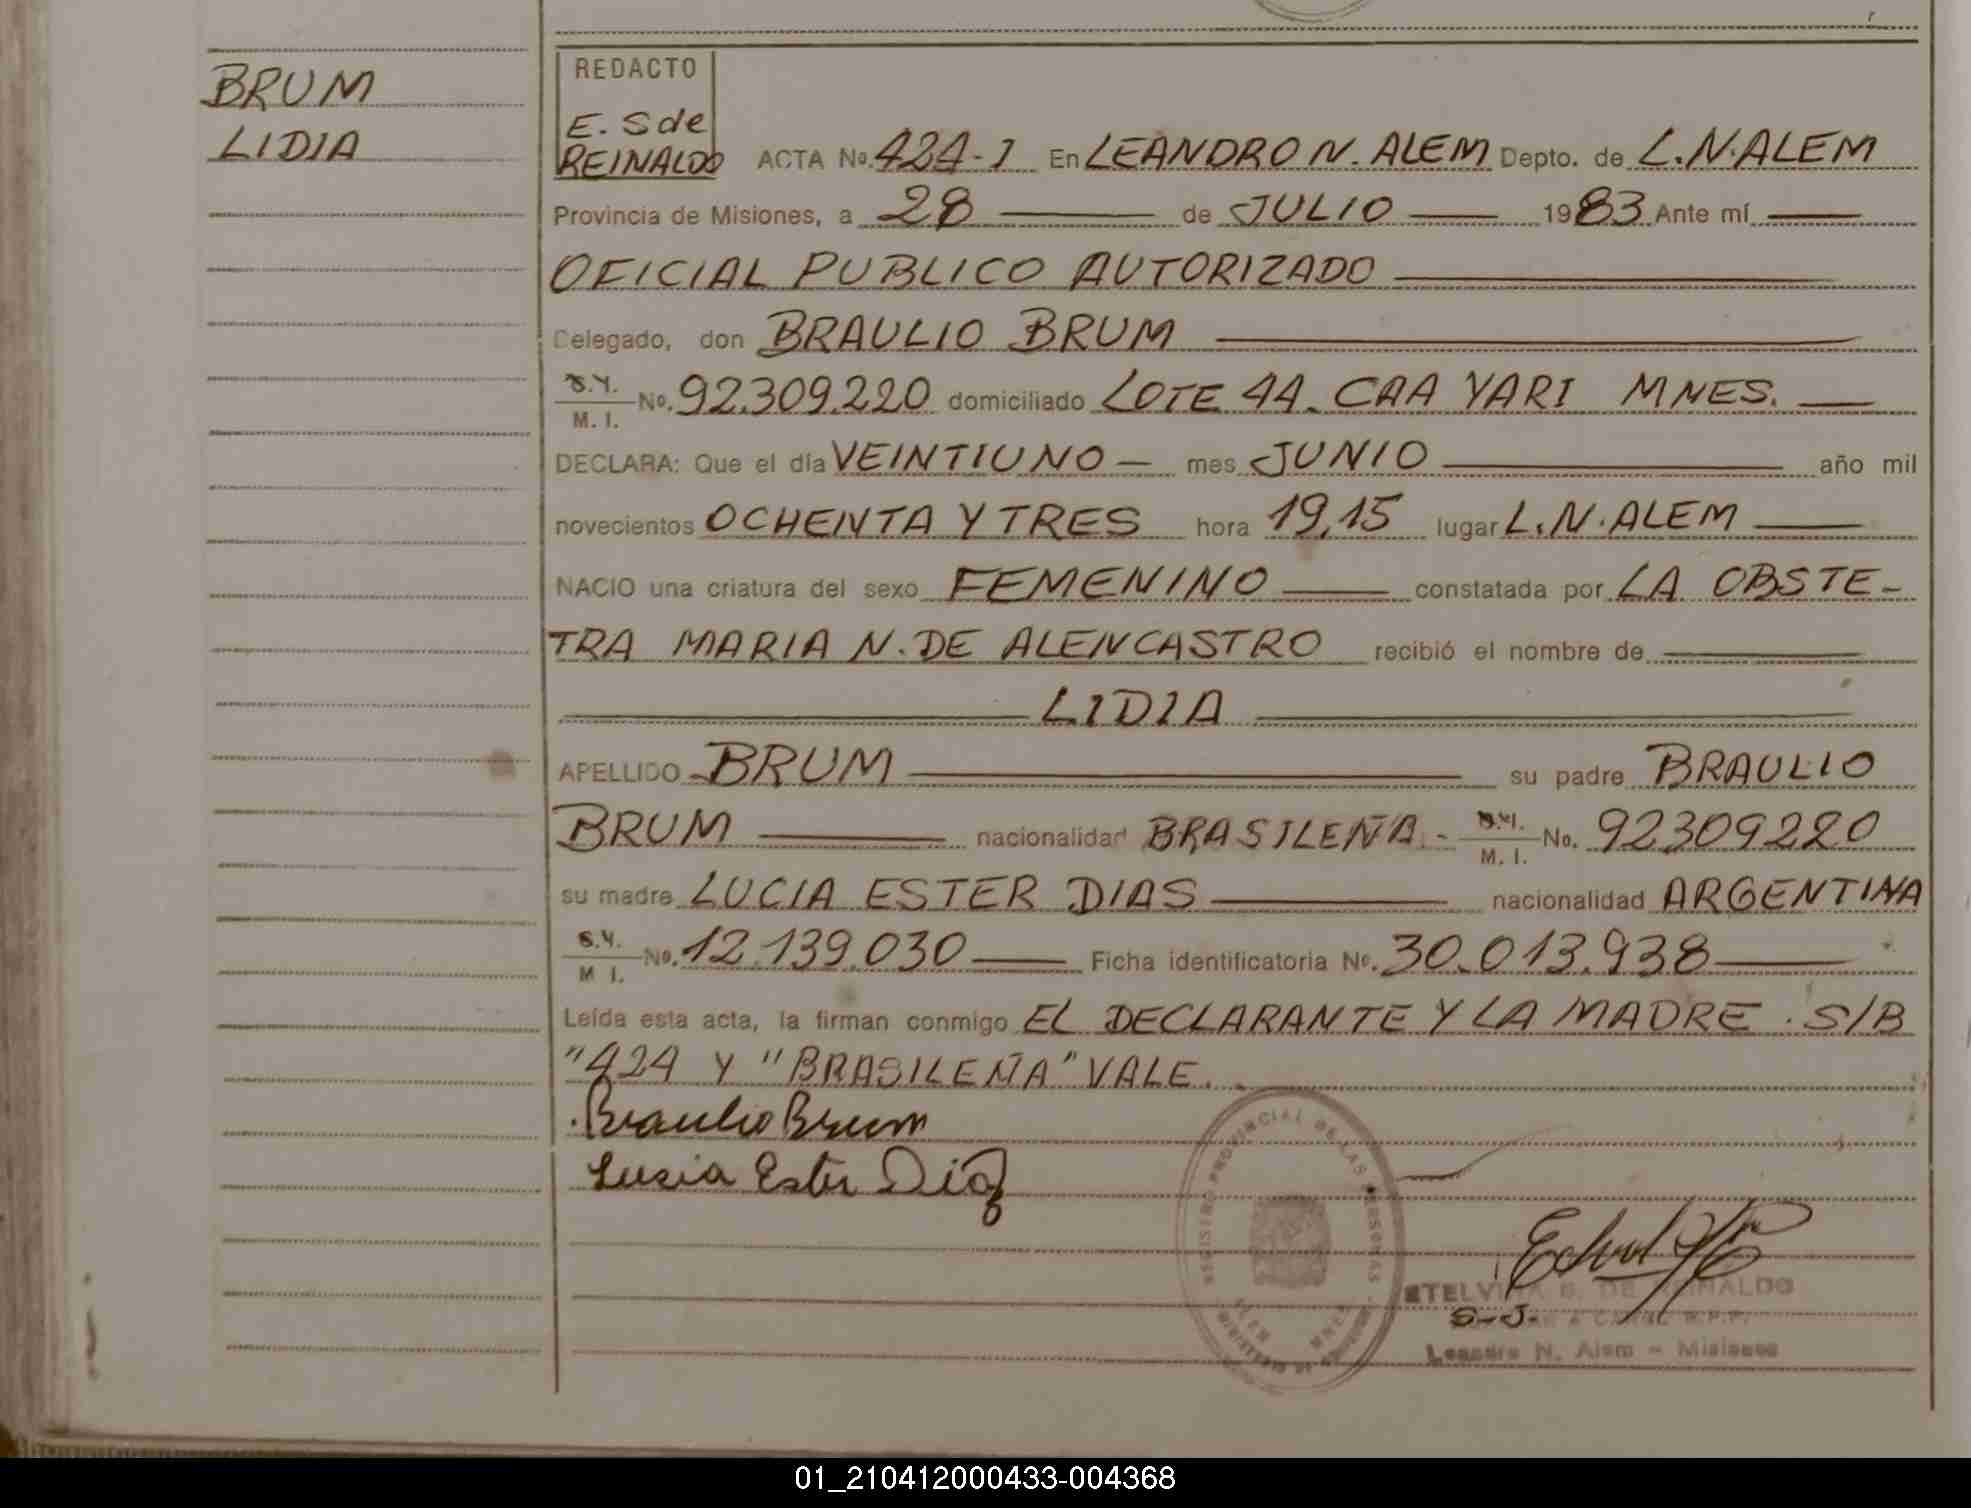 BRUM
LIDIA
REDACTO
E. S de
REINALDO
ACTA No. 424-I En LEANDRO N. ALEM Depto. de L.N.ALEM
Provincia de Misiones, a 28 de JULIO 1983 Ante mí
OFICIAL PUBLICO AUTORIZADO
Delegado, don BRAULIO BRUM
M. I. No. 92.309.220 domiciliado LOTE 44. CAA YARI MNES.
DECLARA: Que el día VEINTIUNO - mes JUNIO año mil
novecientos OCHENTA Y TRES hora 19,15 lugar L.N.ALEM
NACIO una criatura del sexo FEMENINO constatada por LA OBSTE-
TRA MARIA N. DE ALENCASTRO recibió el nombre de
LIDIA
APELLIDO BRUM su padre BRAULIO
BRUM nacionalidad BRASILEÑA - M. I. No. 92309220
su madre LUCIA ESTER DIAS nacionalidad ARGENTINA
M I. No. 12.139.030 Ficha identificatoria No. 30.013.938
Leída esta acta, la firman conmigo EL DECLARANTE Y LA MADRE. S/B
"424 Y "BRASILEÑA" VALE.
Braulio Brum
Lucia Ester Diaz
REGISTRO PROVINCIAL DE LAS PERSONAS
ETELVINA S. DE REINALDO
S-J. A CARGO R.P.P.
Leandro N. Alem - Misiones
01_210412000433-004368